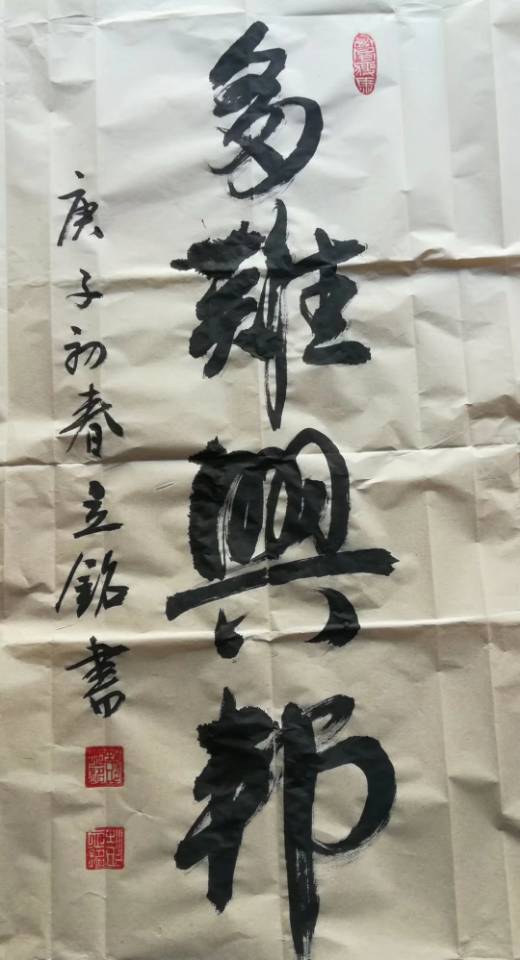 多難興邦
庚子初春立銘書